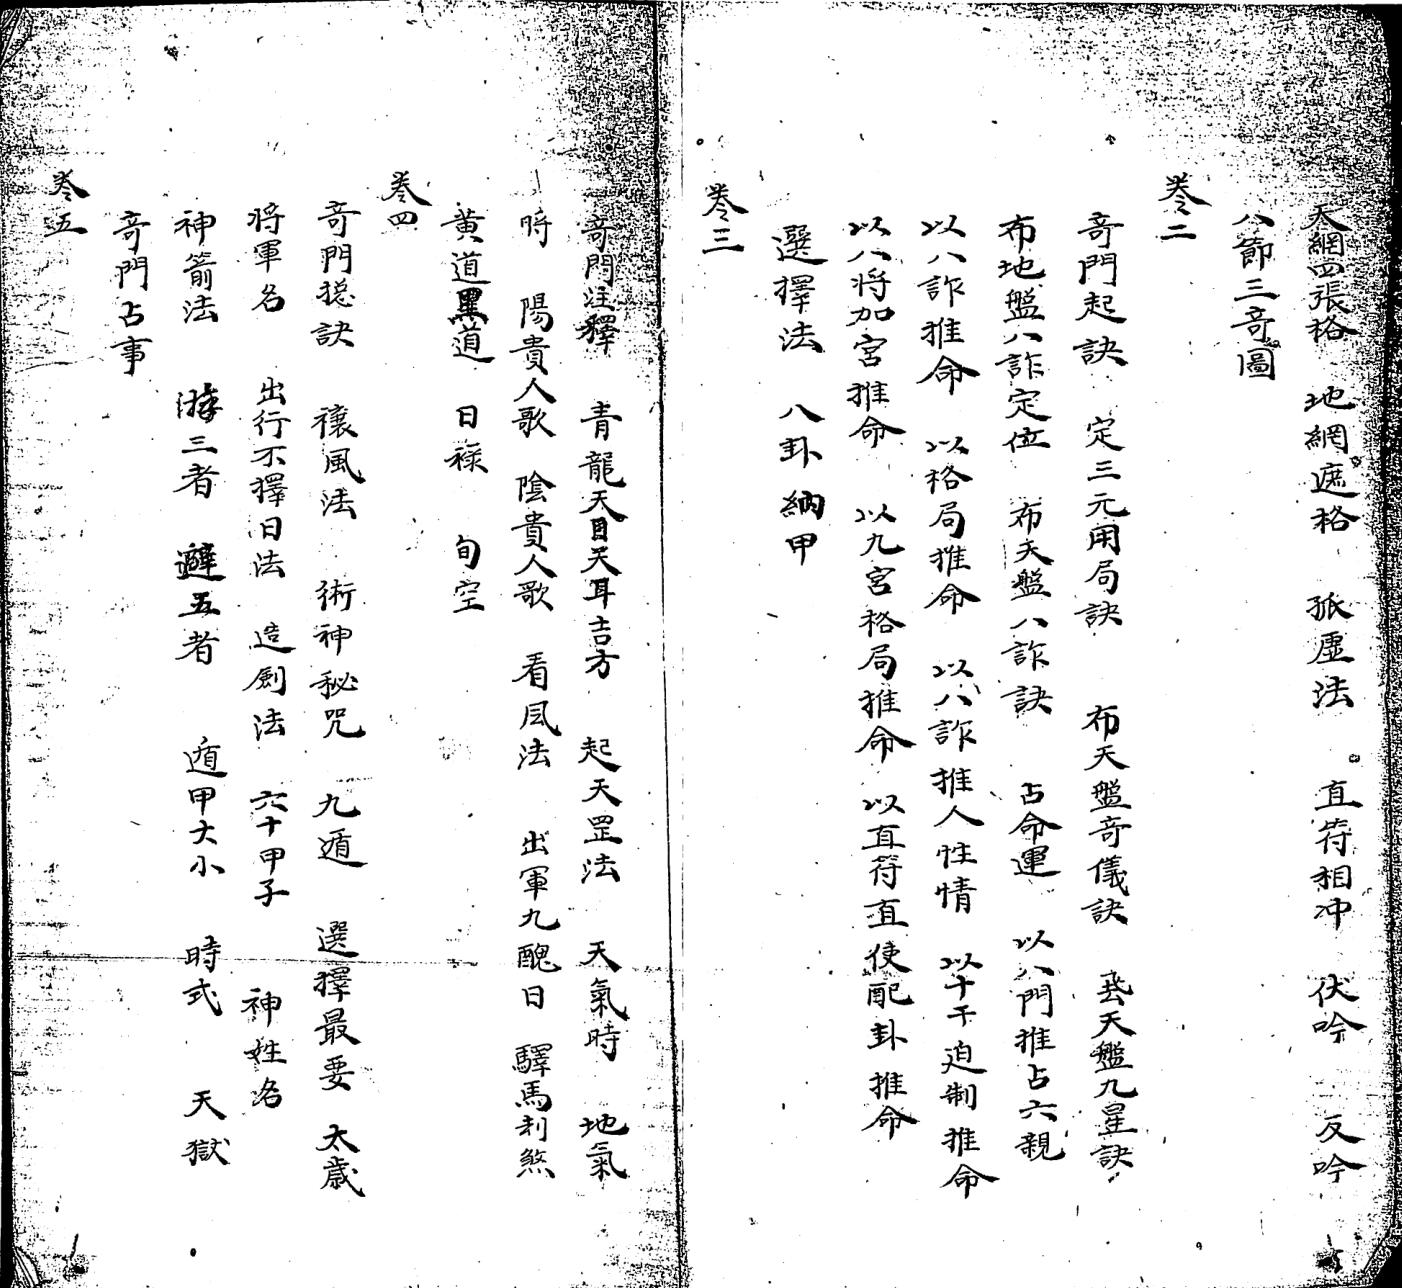 天網四張格　地網遮格　孤虛法　直符相冲　伏吟　反吟
八節三奇圖
卷二
奇門起訣　定三元用局訣　布天盤奇儀訣　飛天盤九星訣
布地盤八詐定位　布天盤八詐訣　占命運　以八門推占六親
以八詐推命　以格局推命　以八詐推人性情　以十干迫制推命
以八將加宮推命　以九宮格局推命　以直符直使配卦推命
選擇法　八卦納甲
卷三
奇門注釋　青龍天目天耳吉方　起天罡法　天氣時　地氣
時　陽貴人歌　陰貴人歌　看風法　出軍九醜日　驛馬刦煞
黃道黑道　日祿　旬空
卷四
奇門總訣　禳風法　術神秘咒　九遁　選擇最要　太歲
將軍名　出行不擇日法　造劍法　六十甲子　神姓名
神箭法　游三者　避五者　遁甲大小　時式　天獄
奇門占事
卷五